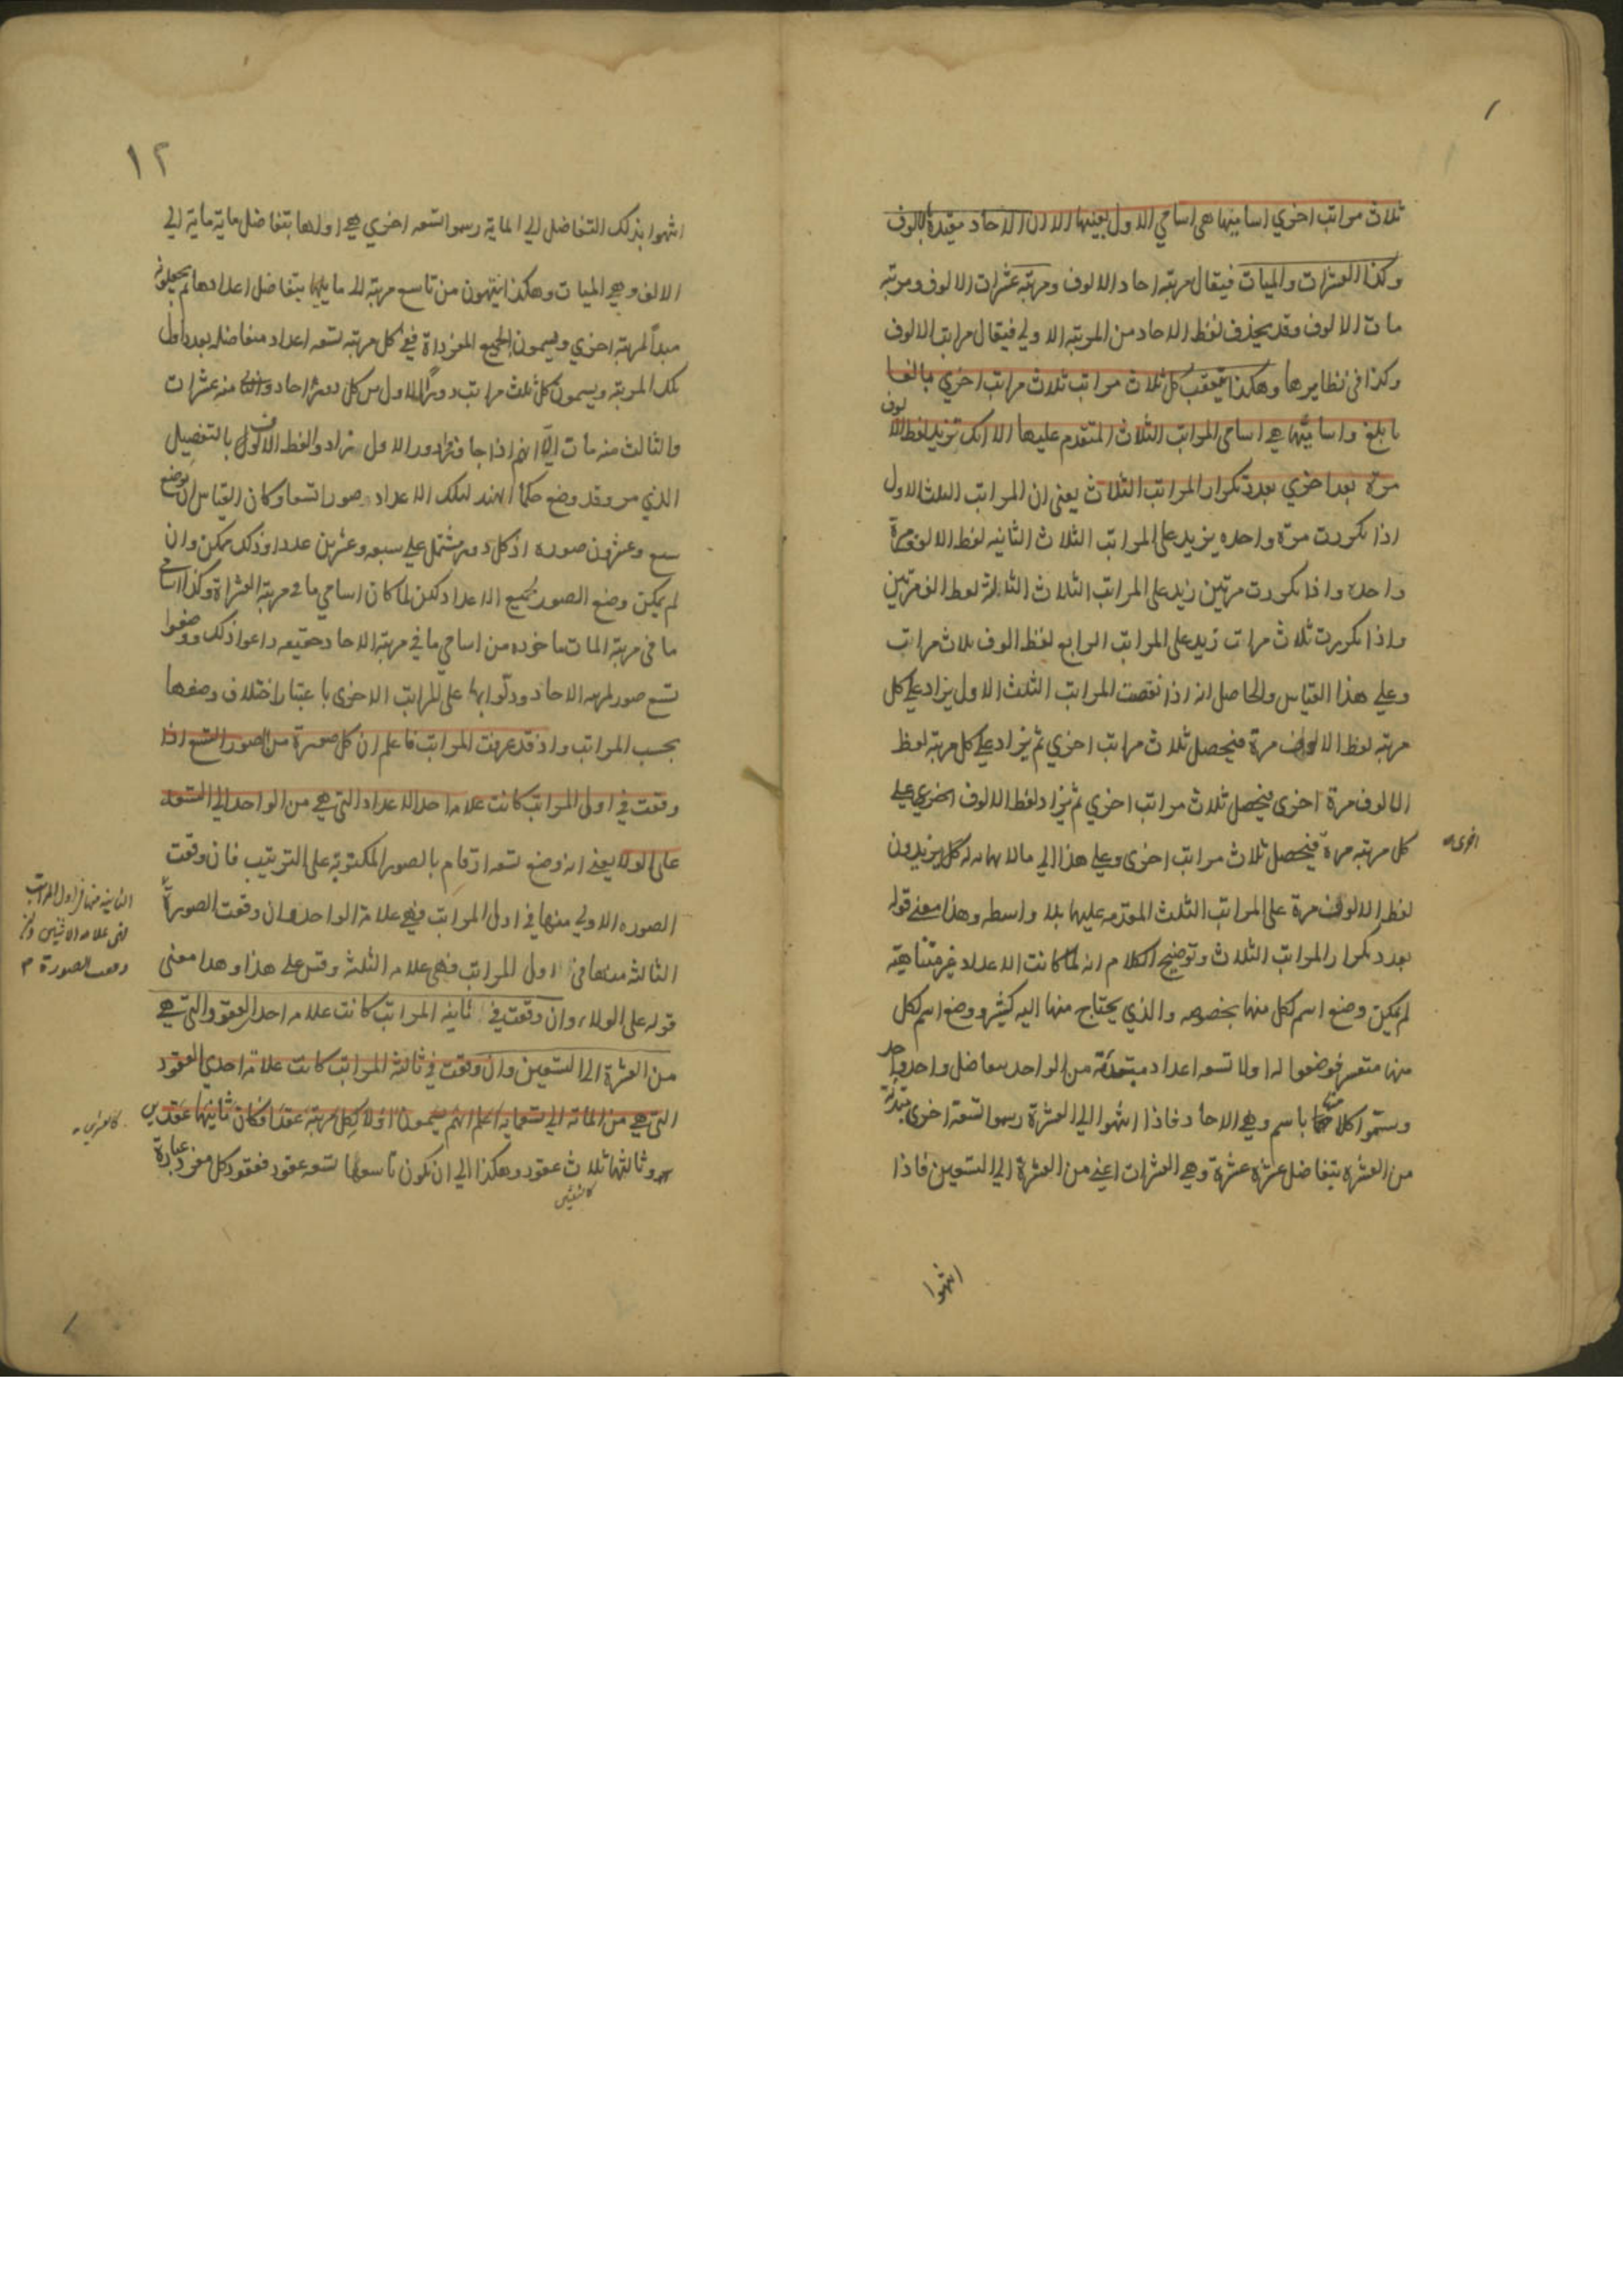 ثلاث مراتب اخري اساميها هي اسامي الاول بعينها الا ان الاحاد مقيدة بالالوف
وكذا العشرات والميات فيقال مرتبة احاد الالوف ومرتبة عشرات الالوف ومرتبه
مات الالوف وقد يحذف لفظ الاحاد من المرتبة الاولي فيقال مراتب الالوف
وكذا في نظايرها وهكذا يتعقب كل ثلاث مراتب ثلاث مراتب اخري بالغا
ما بلغ واساميها هي اسامي المراتب الثلاث المتقدم عليها الا انك تزيد لفظ الالوف
مرة بعد اخري بعدد تكرار المراتب الثلاث يعني ان المراتب الثلث الاول
اذا تكررت مرة واحده يزيد على المراتب الثلاث الثانيه لفظ الالوف مرة
واحده واذا تكررت مرتين زيد على المراتب الثلاث الثالثة لفظ الالوف مرتين
واذا تكررت ثلاث مرات زيد على المراتب الرابع لفظ الوف ثلاث مرات
وعلي هذا القياس والحاصل انه اذا نقصت المراتب الثلث الاول يزاد علي كل
مرتبه لفظ الالوف مرة فيحصل ثلاث مراتب اخري ثم يزاد علي كل مرتبه لفظ
الالوف مرة اخري فيحصل ثلاث مراتب اخري ثم يزاد لفظ الالوف اخري علي
اخري
كل مرتبه مرة فيحصل ثلاث مراتب اخري وعلي هذا الي مالا نهايه له كل يزيدون
لفظ الالوف مرة على المراتب الثلث المقدمه عليها بلا واسطه وهذا معني قوله
بعدد تكرار المراتب الثلاث وتوضيح الكلام انه لما كانت الاعداد غير متناهية
لم يمكن وضع اسم لكل منها بخصوصه والذي يحتاج منها اليه كثير ووضع اسم لكل
منها متعسر فوضعوا له اولا تسعه اعداد مبتدئة من الواحد بتفاضل واحد واحد
وسموا كلا منها باسم وهي الاحاد فاذا انتهوا الي العشرة رسموا تسعة اخري مبتدئة
من العشره بتفاضل عشرة عشرة وهي العشرات اعني من العشرة الي التسعين فاذا
انتهوا
١٢
انتهوا بذلك التفاضل الي الماية رسموا تسعه اخري هي اولها بتفاضل ماية ماية الي
الالف وهي الميات وهكذا ينتهون من تاسع مرتبة الا ما يليها بتفاضل اعدادها ثم يجعلونه
مبدأ لمرتبه اخري ويسمون الجميع المفرداة ففي كل مرتبه تسعه اعداد متفاضله بعدد اول
تلك المرتبة ويسمون كل ثلث مراتب دورا الاول من كل دور احاد والثاني منه عشرات
والثالث منه مات الا انهم اذا جاوزوا دور الاول زادوا لفظ الالوف بالتفصيل
الذي مر وقد وضع حكماء الهند لتلك الاعداد صورا تسعا وكان القياس ان يوضع
سبع وعشرون صوره اذ كل دور مشتمل علي سبعه وعشرين عددا وذلك ممكن وان
لم يمكن وضع الصور لجميع الاعداد لكن لما كان اسامي ما في مرتبة العشراة وكذا اسامي
ما في مرتبة المات ماخوذه من اسامي ما في مرتبة الاحاد حقيقه راعوا ذلك ووضعوا
تسع صور لمرتبه الاحاد ودلوا بها على المراتب الاخري باعتبار اختلاف وضعها
بحسب المراتب واذ قد عرفت المراتب فاعلم ان كل صورة من الصور التسع اذا
وقعت في اول المراتب كانت علامه احد الاعداد التي هي من الواحد الي التسعه
على الولا يعني انه وضع تسعه ارقام بالصور المكتوبة على الترتيب فان وقعت
الصوره الاولي منها في اول المراتب فهي علامة الواحد وان وقعت الصورة
الثانيه منها في اول المراتب
فهي علامه الاثنين وان
وقعت الصورة م
الثالثه منها في اول المراتب فهي علامه الثلثة وقس على هذا وهذا معني
قوله على الولاء وان وقعت في ثانيه المراتب كانت علامه احد العقود التي هي
من العشرة الي التسعين وان وقعت في ثالثة المراتب كانت علامة احدي العقود
التي هي من المائة الي تسعمايه اعلم انهم يسمون اولا كل مرتبة عقدا فكان ثانيها عقدين
كالعشرين
وثالثها ثلاث عقود وهكذا الي ان يكون تاسعها تسعه عقود فعقود كل مفرد عبارة
كالثلثين